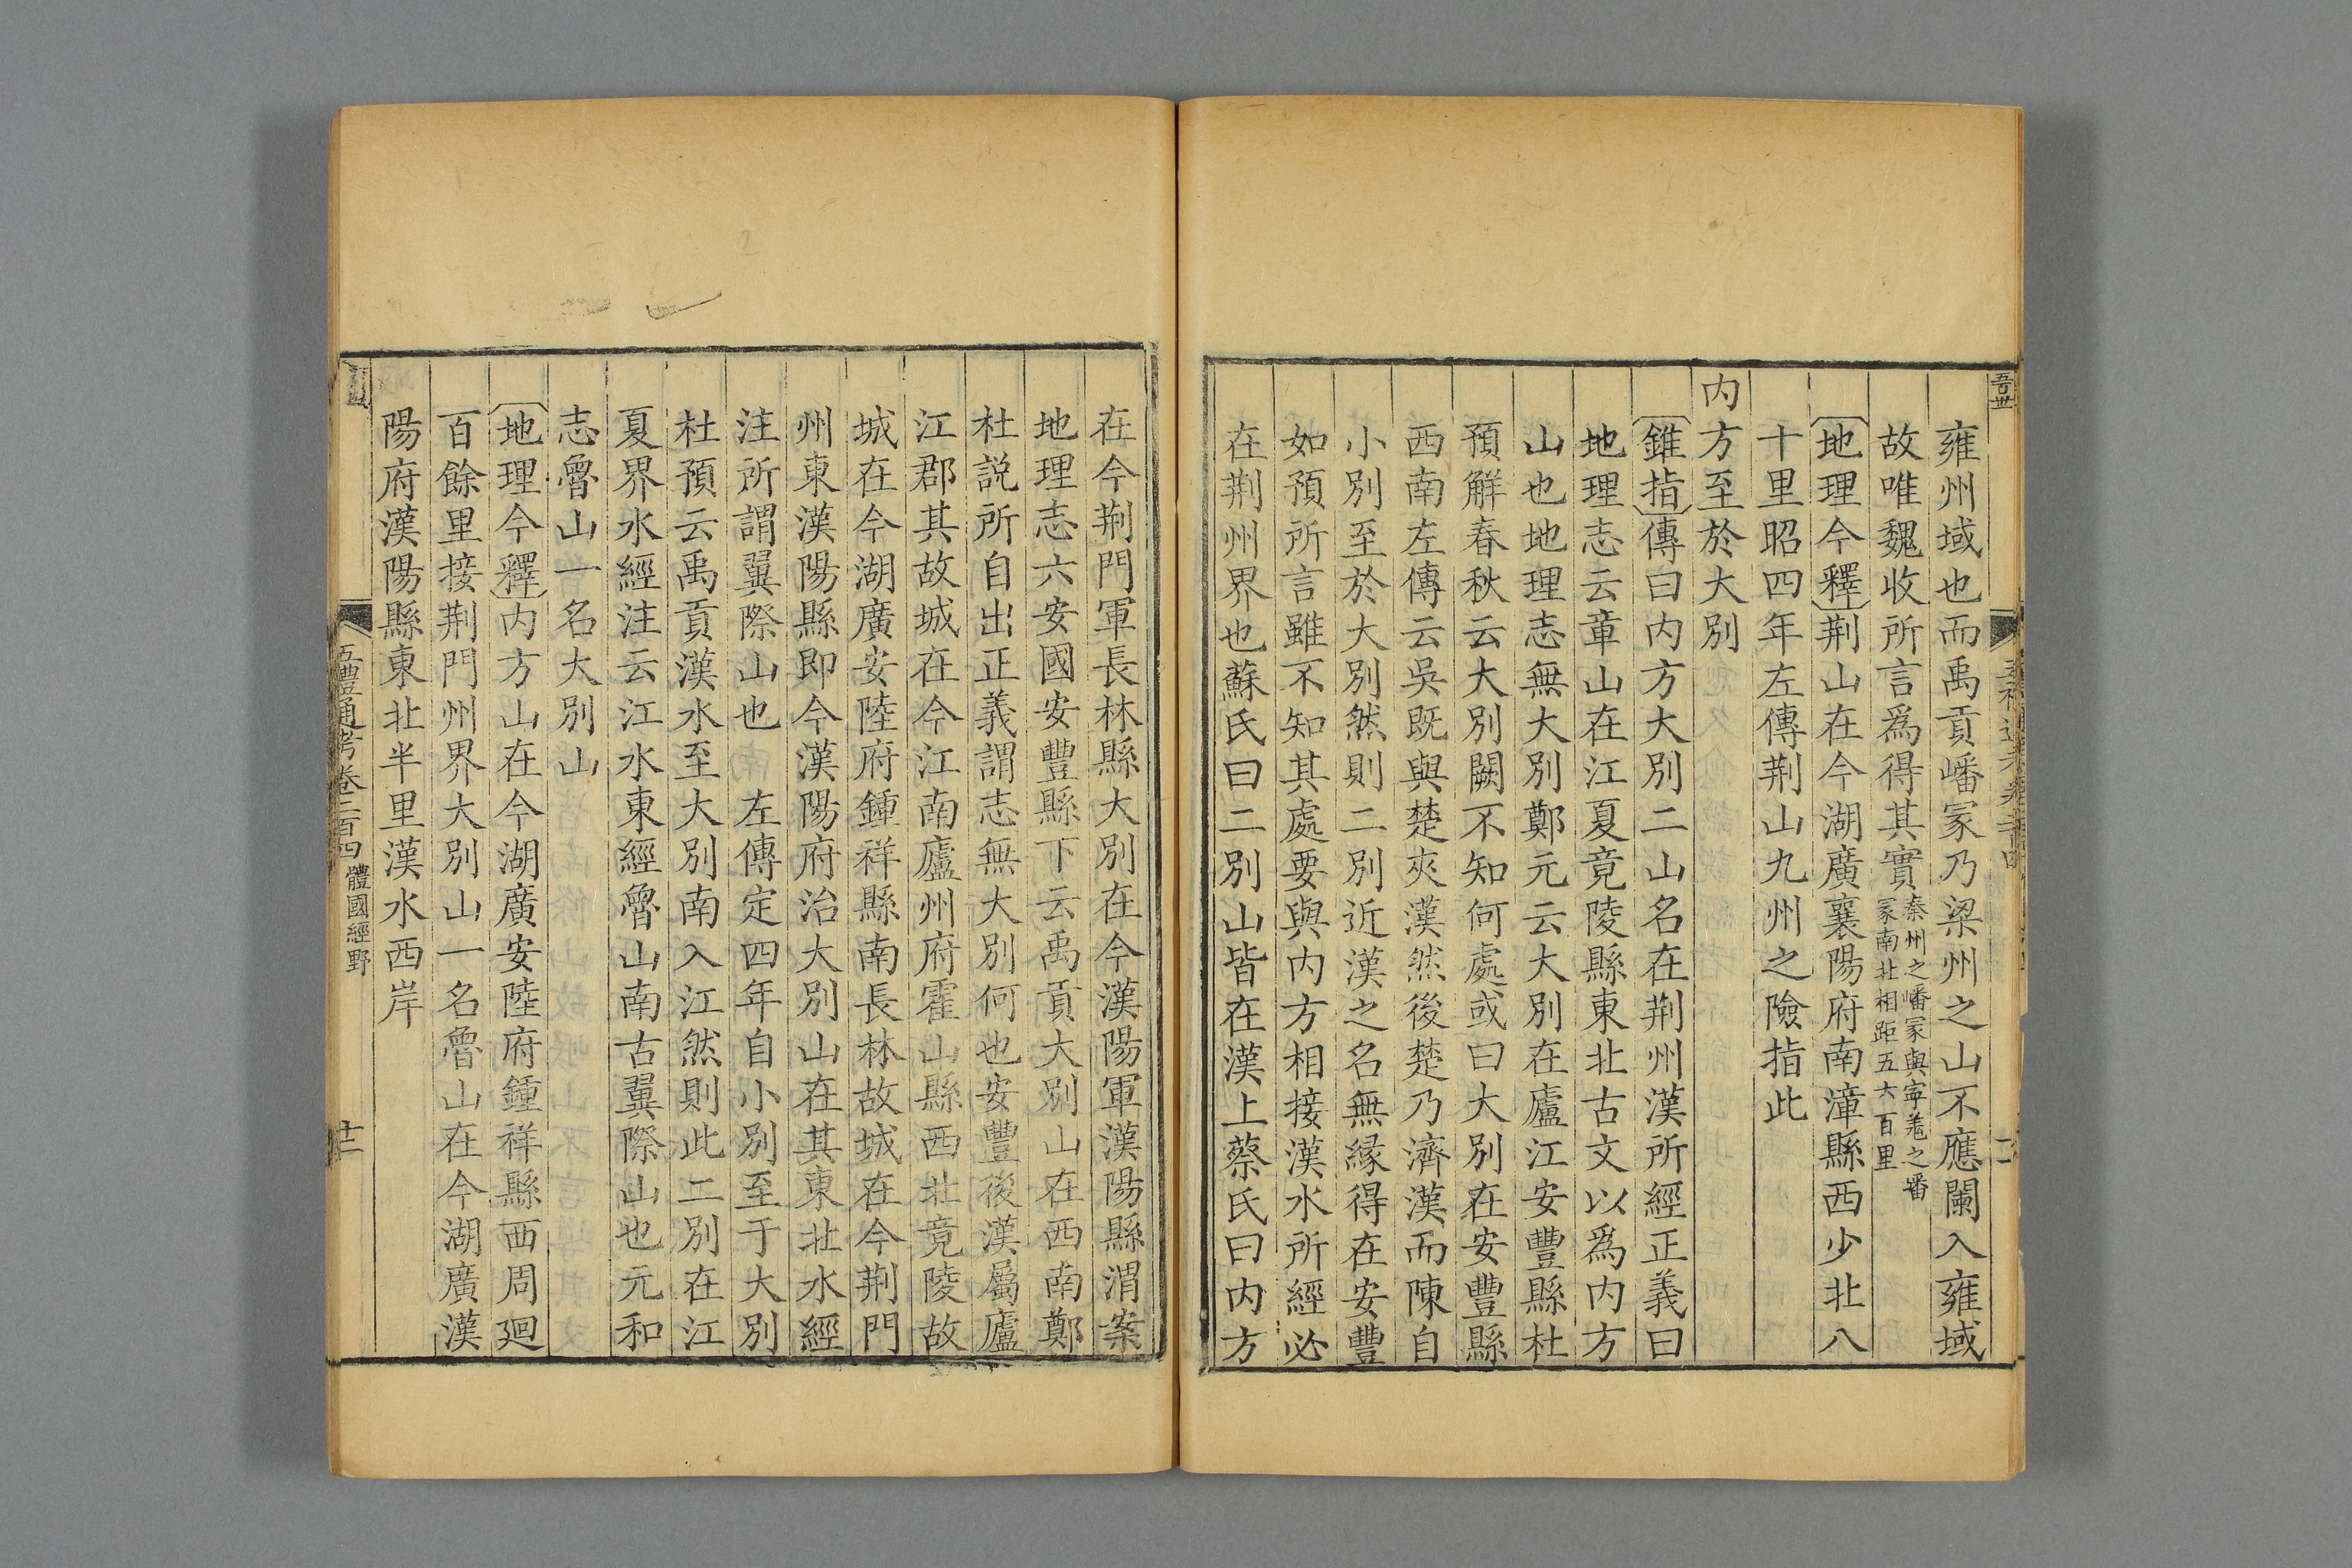 雍州域也而禹貢嶓冢乃梁州之山不應闌入雍域
故唯魏收所言爲得其實秦州之嶓冢與寧羗之嶓
冢南北相距五六百里
地理今釋荆山在今湖廣襄陽府南漳縣西少北八
十里昭四年左傳荆山九州之險指此
内方至於大別
錐指傳曰内方大別二山名在荆州漢所經正義曰
地理志云章山在江夏竟陵縣東北古文以爲内方
山也地理志無大別鄭元云大別在廬江安豐縣杜
預解春秋云大別闕不知何處或曰大別在安豐縣
西南左傳云吳既與楚夾漢然後楚乃濟漢而陳自
小別至於大別然則二別近漢之名無縁得在安豐
如預所言雖不知其處要與内方相接漢水所經必
在荆州界也蘇氏曰二別山皆在漢上蔡氏曰内方
在今荆門軍長林縣大別在今漢陽軍漢陽縣渭案
地理志六安國安豐縣下云禹貢大別山在西南鄭
杜説所自出正義謂志無大別何也安豐後漢屬廬
江郡其故城在今江南廬州府霍山縣西北竟陵故
城在今湖廣安陸府鍾祥縣南長林故城在今荆門
州東漢陽縣即今漢陽府治大別山在其東北水經
注所謂翼際山也 左傳定四年自小別至于大別
杜預云禹貢漢水至大別南入江然則此二別在江
夏界水經注云江水東經魯山南古翼際山也元和
志魯山一名大別山
地理今釋内方山在今湖廣安陸府鍾祥縣西周廻
百餘里接荆門州界大別山一名魯山在今湖廣漢
陽府漢陽縣東北半里漢水西岸
五禮通考卷二百四 體國經野
十二